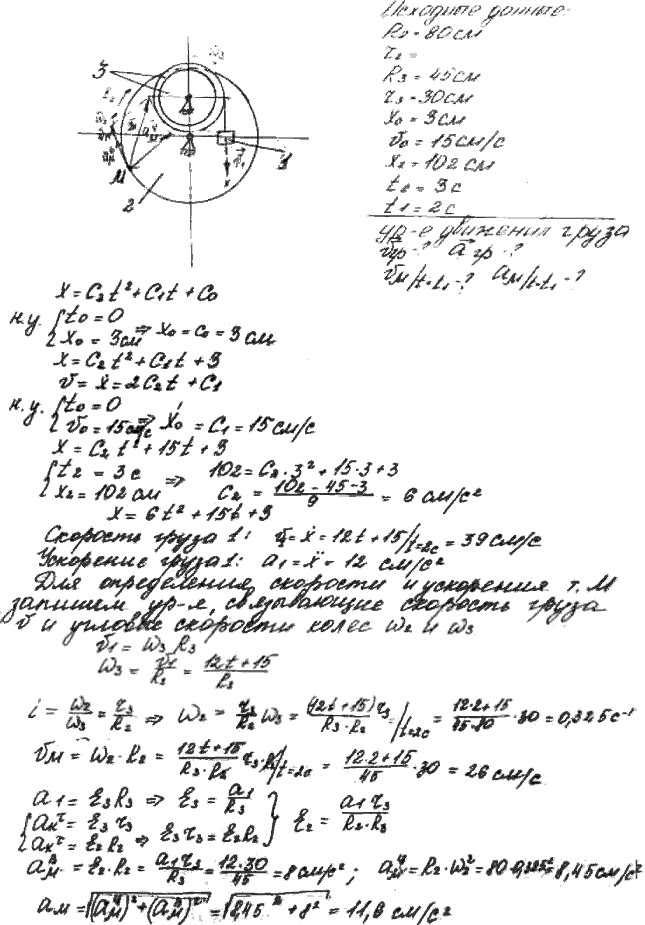 Исходные данные:
R2 = 80 см
r2 =
R3 = 45 см
r3 = 30 см
x0 = 3 см
v0 = 15 см/с
x2 = 102 см
t2 = 3 с
t1 = 2 с
ур-е движения груза
vгр - ? aгр - ?
vм/t=t1 - ? aм/t=t1 - ?
3
M
2
1
x
x = C2t² + C1t + C0
н.у. { t0 = 0
{ x0 = 3 см ⇒ x0 = C0 = 3 см
x = C2t² + C1t + 3
v = ẋ = 2C2t + C1
н.у. { t0 = 0
{ v0 = 15 см/с ⇒ ẋ0 = C1 = 15 см/с
x = C2t² + 15t + 3
{ t2 = 3 с
{ x2 = 102 см ⇒ 102 = C2·3² + 15·3 + 3
C2 = (102 - 45 - 3)/9 = 6 см/с²
x = 6t² + 15t + 3
Скорость груза 1: v1 = ẋ = 12t + 15/t=2c = 39 см/с
Ускорение груза 1: a1 = ẍ = 12 см/с²
Для определения скорости и ускорения т. М
запишем ур-я, связывающие скорость груза
v и угловые скорости колес ω2 и ω3
v1 = ω3 R3
ω3 = v1/R3 = (12t + 15)/R3
i = ω2/ω3 = r3/R2 ⇒ ω2 = r3/R2 ω3 = (12t + 15)r3/(R3·R2) /t=2c = (12·2 + 15)/(45·80) · 30 = 0,325 с⁻¹
vм = ω2·R2 = (12t + 15)/(R3·R2) r3·R2/t=2c = (12·2 + 15)/45 · 30 = 26 см/с
a1 = ε3R3 ⇒ ε3 = a1/R3
{ aкτ = ε3 r3
{ aкτ = ε2R2 ⇒ ε3r3 = ε2R2 } ε2 = a1r3/(R2·R3)
aмв = ε2·R2 = a1r3/R3 = 12·30/45 = 8 см/с²; aмц = R2·ω2² = 80·0,325² = 8,45 см/с²
aм = √((aмц)² + (aмв)²) = √(8,45² + 8²) = 11,6 см/с²